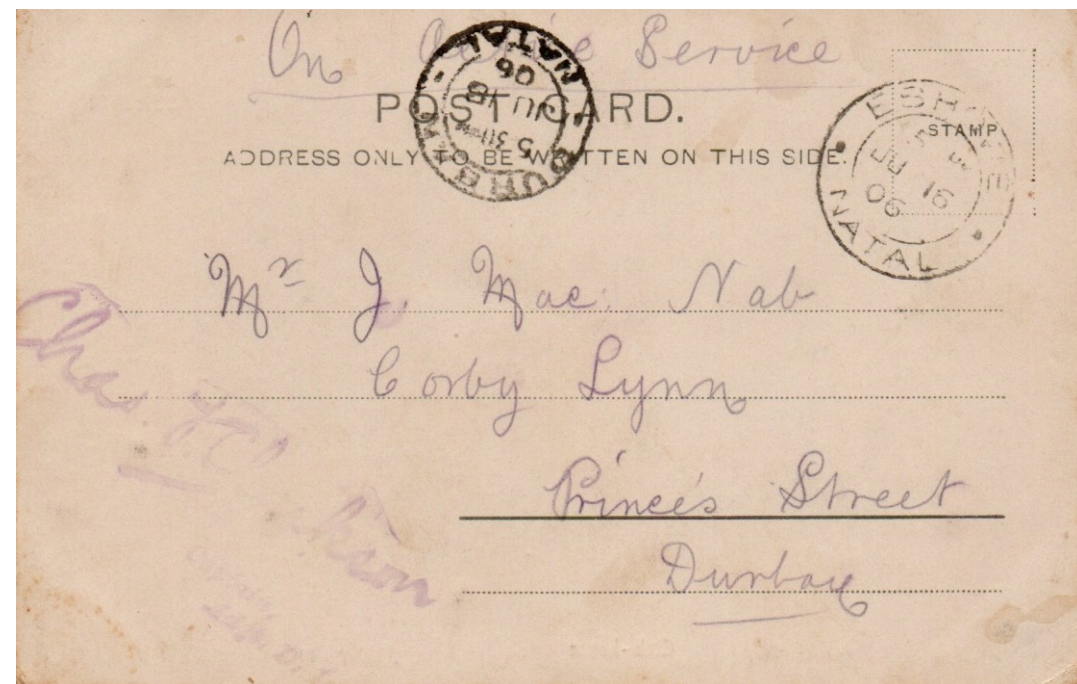 On Active Service
POST CARD.
ADDRESS ONLY TO BE WRITTEN ON THIS SIDE.
STAMP
DURBAN
5 30 PM
JU 18
06
NATAL
ESHOWE
16
06
NATAL
Mr J. Mac. Nab
Corby Lynn
Prince's Street
Durban
Chas